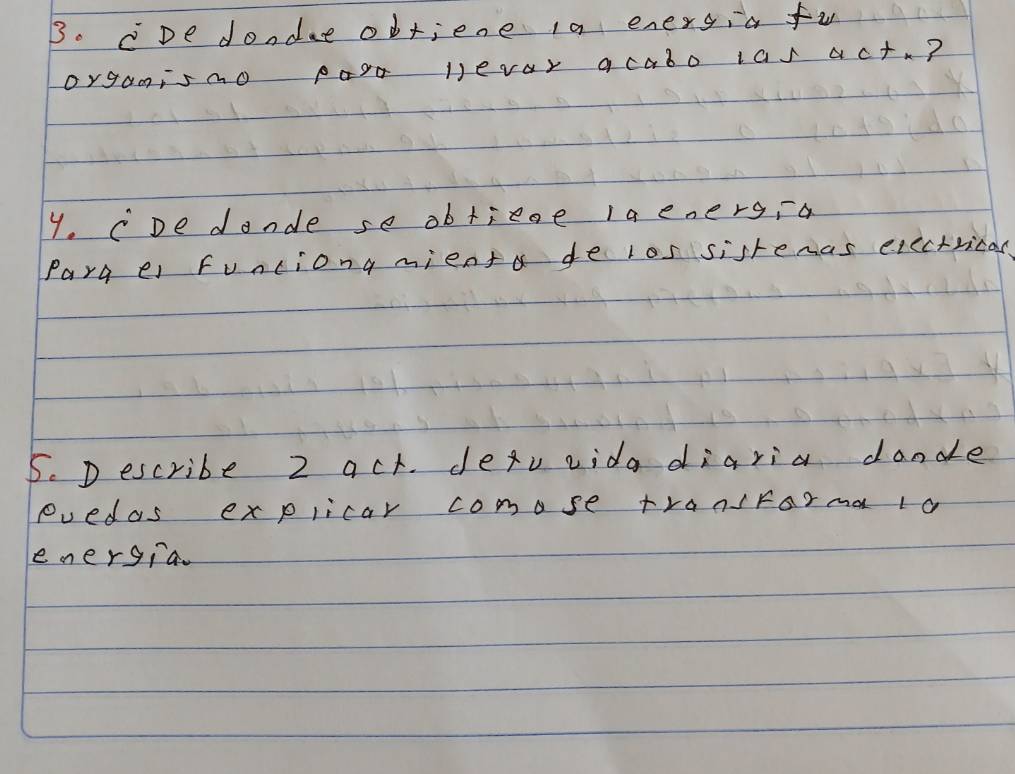 3. ¿De dondee obtiene la energía tu
organismo para llevar acabo las act.?
4. ¿De donde se obtiene la energía
Para el funcionamiento de los sistemas electricos.
5. Describe 2 act. detu vida diaria donde
puedas explicar como se transforma la
energía.